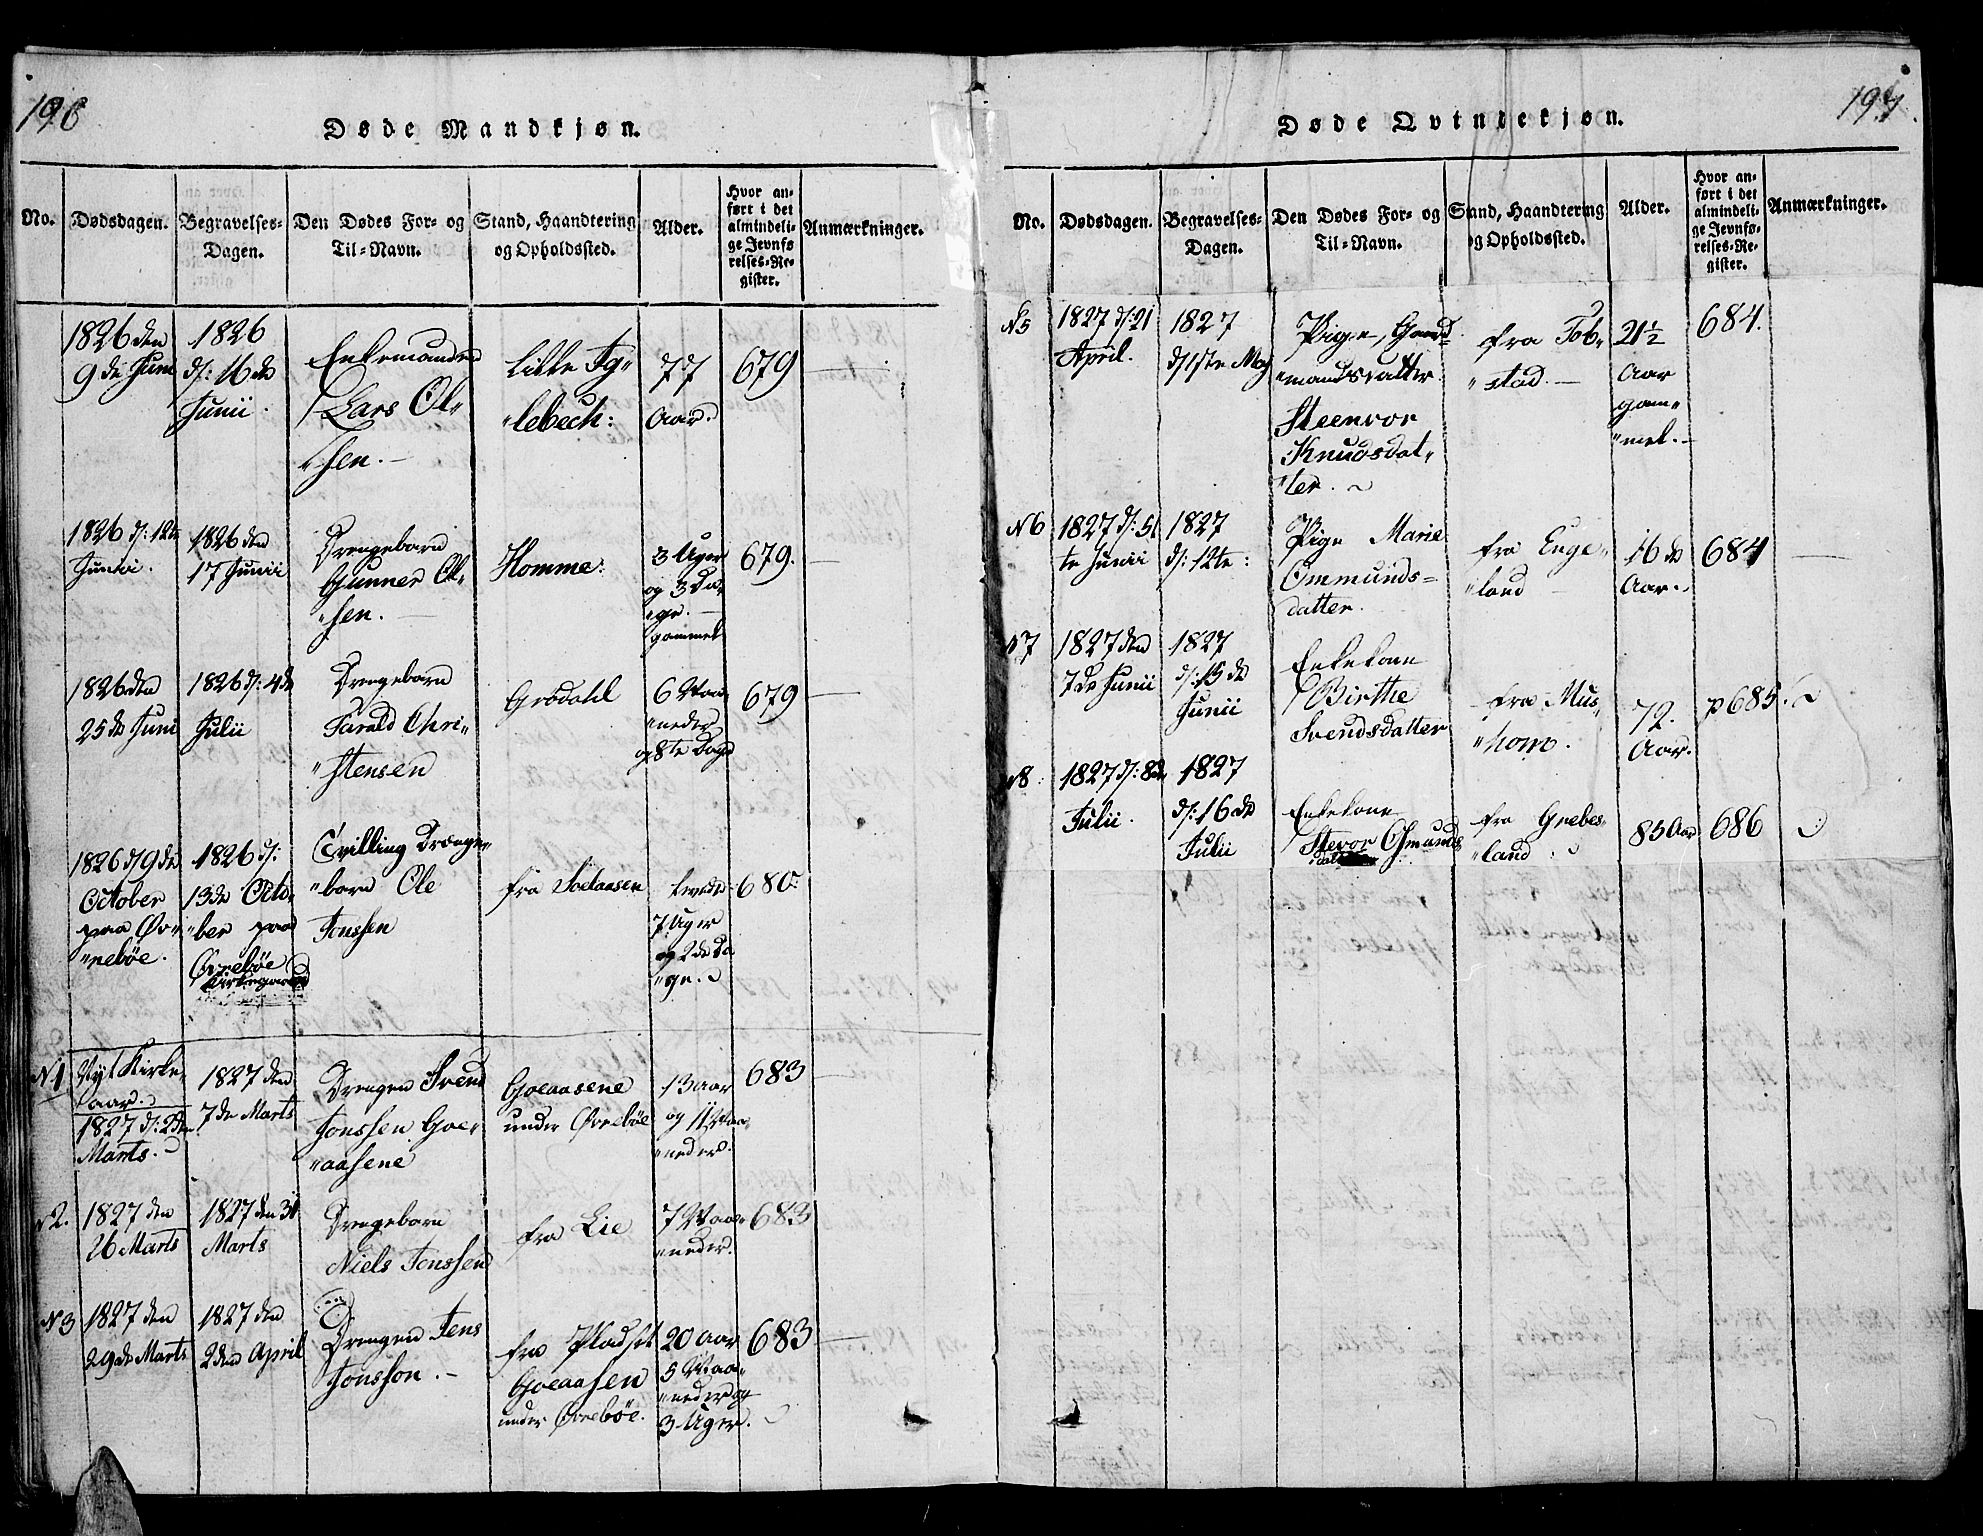 196
Døde Mandkjøn.
No.
Dødsdagen.
Begravelses-
Dagen.
Den Dødes For- og
Til-Navn.
Stand, Haandtering
og Opholdssted.
Alder.
Hvor an-
ført i det
almindeli-
ge Jevnfø
relses-Re-
gister.
Anmærkninger.
1826 den
9de Juni
1826
d: 16de
Junii.
Enkemanden
Lars Ol„
„sen. —
Lille Fg„
„lebech:
77
Aar.
679
1826 d: 12te
Junii.
1826 den
17 Junii
Drengebarn
Gunner Ol„
„sen. —
Homme:
3 Uger
og 3 Da„
„ge. —
gammel
679.
1826 den
25de Juni
1826 d: 4de
Julii
Drengebarn
Tarald Chri„
„stensen
Grødahl
6 Maa„
„neder
og 8te Dage
679
1826 d 9de
October
paa Øv„
„rebøe.
1826 d:
13de Octo„
„ber paa
Øvrebøe
Kirkegaard
Tvilling Drænge„
„barn Ole
Jonssen
fra
7 Uger
og 2de Da
„ge.
680:
N1
Nyt Kirke„
aar.
1827 d: 2den
Marts.
1827 den
7de Marts
Drengen Svend
Jonssen Goe„
„aasene
Goeaasene
under Øvrebøe
13 aar
og 11 Maa„
„neder.
683
N2.
1827 den
26 Marts
1827 den 31
Marts
Drengebarn
Niels Jonssen
fra Lie
7 Maa„
„neder.
683
N3
1827 den
29de Marts
1827 den
2den April
Drengen Jens
Jonsson. —
fra Pladset
Goeaasen
under Øvrebøe.
20 Aar
5 Maa„
„neder og
3 Uger.
683
197.
Døde Qvindekjøn.
No.
Dødsdagen.
Begravelses-
Dagen.
Den Dødes For- og
Til-Navn.
Stand, Haandtering
og Opholdssted.
Alder.
Hvor an-
ført i det
almindeli-
ge Jevnfø-
relses-Re-
gister.
Anmærkninger.
N5
1827 d: 21
April.
1827
d 1ste May
Pige, Gaard„
„mandsdatter
Steenvor
Knudsdat„
„ter.
fra Tob„
„stad. —
21½
Aar
gam„
„mel. —
684.
N6
1827 d: 5
te Junii
1827
d: 12te:
Pige Marie
Ommunds=
datter.
fra Enge„
„land
16de
Aar.
684
N7
1827 den
7de Junii
1827
d: 13de
Junii
Enkekone
Birthe
Svendsdatter
fra Mus„
„hom.
72.
Aar.
p685.
N8
1827 d: 8de
Julii.
1827
d: 16de
Julii
Enkekone
Stevor Osmunds
fra Grebes„
„land
85 Aar
686